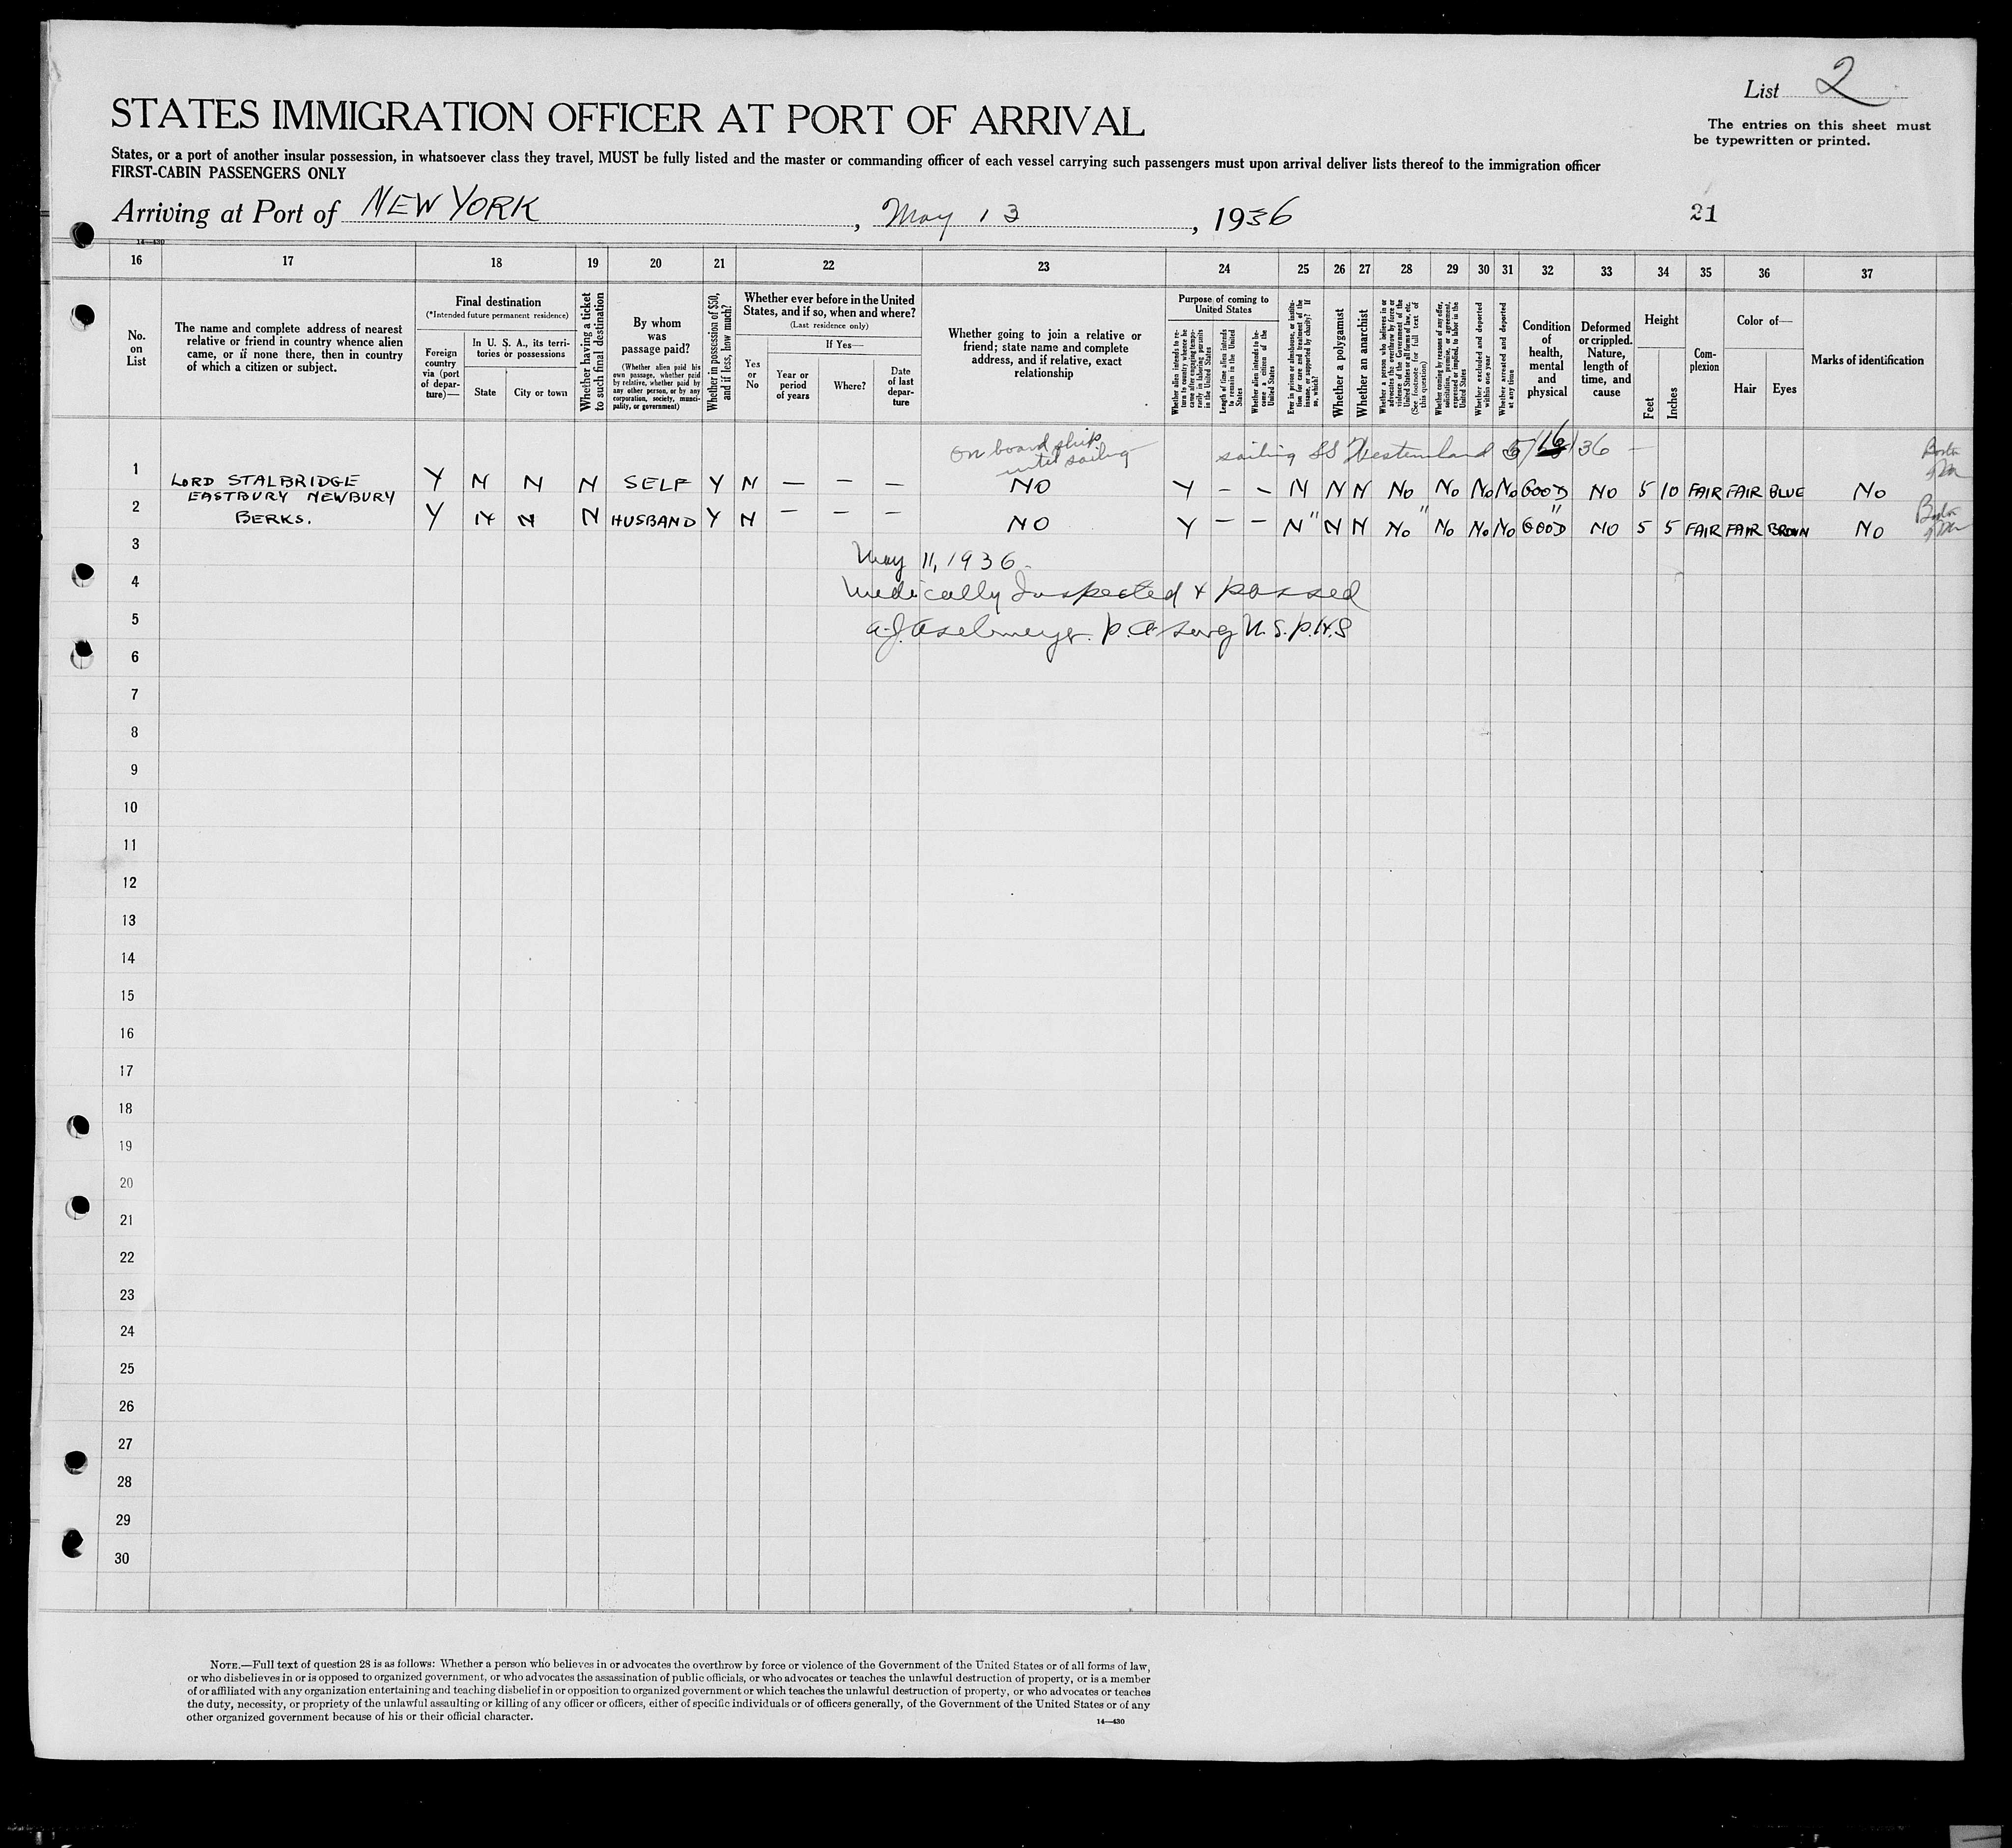 List 2
STATES IMMIGRATION OFFICER AT PORT OF ARRIVAL
The entries on this sheet must
be typewritten or printed.
States, or a port of another insular possession, in whatsoever class they travel, MUST be fully listed and the master or commanding officer of each vessel carrying such passengers must upon arrival deliver lists thereof to the immigration officer
FIRST-CABIN PASSENGERS ONLY
Arriving at Port of NEW YORK, May 13, 1936
21
14—430
16 17 18 19 20 21 22 23 24 25 26 27 28 29 30 31 32 33 34 35 36 37
No.
on
List
The name and complete address of nearest
relative or friend in country whence alien
came, or if none there, then in country
of which a citizen or subject.
Final destination
(*Intended future permanent residence)
Foreign
country
via (port
of depar-
ture)—
In U. S. A., its terri-
tories or possessions
State
City or town
Whether having a ticket
to such final destination
By whom
was
passage paid?
(Whether alien paid his
own passage, whether paid
by relative, whether paid by
any other person, or by any
corporation, society, munici-
pality, or government)
Whether in possession of $50,
and if less, how much?
Whether ever before in the United
States, and if so, when and where?
(Last residence only)
Yes
or
No
If Yes—
Year or
period
of years
Where?
Date
of last
depar-
ture
Whether going to join a relative or
friend; state name and complete
address, and if relative, exact
relationship
Purpose of coming to
United States
Whether alien intends to re-
turn to country whence he
came after engaging tempo-
rarily in laboring pursuits
in the United States
Length of time alien intends
to remain in the United
States
Whether alien intends to be-
come a citizen of the
United States
Ever in prison or almshouse, or institu-
tion for care and treatment of the
insane, or supported by charity? If
so, which?
Whether a polygamist
Whether an anarchist
Whether a person who believes in or
advocates the overthrow by force or
violence of the Government of the
United States or all forms of law, etc.
(See footnote for full text of
this question)
Whether coming by reasons of any offer,
solicitation, promise, or agreement,
expressed or implied, to labor in the
United States
Whether excluded and deported
within one year
Whether arrested and deported
at any time
Condition
of
health,
mental
and
physical
Deformed
or crippled.
Nature,
length of
time, and
cause
Height
Feet
Inches
Com-
plexion
Color of—
Hair
Eyes
Marks of identification
On board ship
until sailing
sailing SS Westernland 5/16/36 —
1 LORD STALBRIDGE Y N N N SELF Y N — — — NO Y - - N N N No No No No GOOD NO 5 10 FAIR FAIR BLUE No
EASTBURY NEWBURY
2 BERKS. Y N N N HUSBAND Y N — — — NO Y — — N " N N No " No No No GOOD " NO 5 5 FAIR FAIR BROWN No
3 May 11, 1936.
4 Medically Inspected & passed
5 A.J. Aselmeyer. P.A. Surg U.S.P.H.S
6
7
8
9
10
11
12
13
14
15
16
17
18
19
20
21
22
23
24
25
26
27
28
29
30
NOTE.—Full text of question 28 is as follows: Whether a person who believes in or advocates the overthrow by force or violence of the Government of the United States or of all forms of law,
or who disbelieves in or is opposed to organized government, or who advocates the assassination of public officials, or who advocates or teaches the unlawful destruction of property, or is a member
of or affiliated with any organization entertaining and teaching disbelief in or opposition to organized government or which teaches the unlawful destruction of property, or who advocates or teaches
the duty, necessity, or propriety of the unlawful assaulting or killing of any officer or officers, either of specific individuals or of officers generally, of the Government of the United States or of any
other organized government because of his or their official character.
14—430